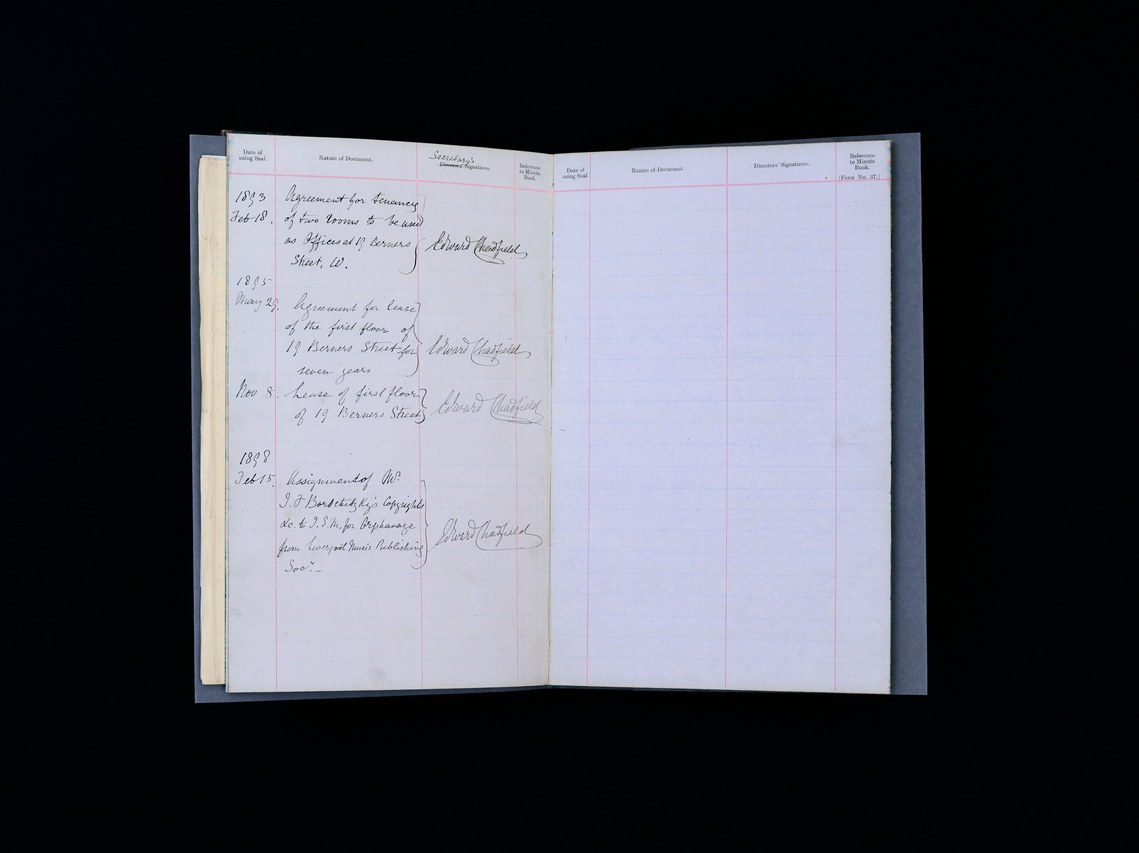 Date of
using Seal.
Nature of Document.
Secretary's
Directors' Signatures.
Reference
to Minute
Book.
1893
Feb 18.
Agreement for tenancy
of two rooms to be used
as Offices at 19 Berners
Street, W.
Edward Chadfield
1895
May 29.
Agreement for lease
of the first floor of
19 Berners Street for
seven years
Edward Chadfield
Nov 8.
Lease of first floor
of 19 Berners Street
Edward Chadfield
1898
Feb 15.
Assignment of Mr
Copyrights
&c. to I.S.M. for Orphanage
from Liverpool Music Publishing
Socy. —
Edward Chadfield
Date of
using Seal
Nature of Document.
Directors' Signatures.
Reference
to Minute
Book.
(Form No. 37.)